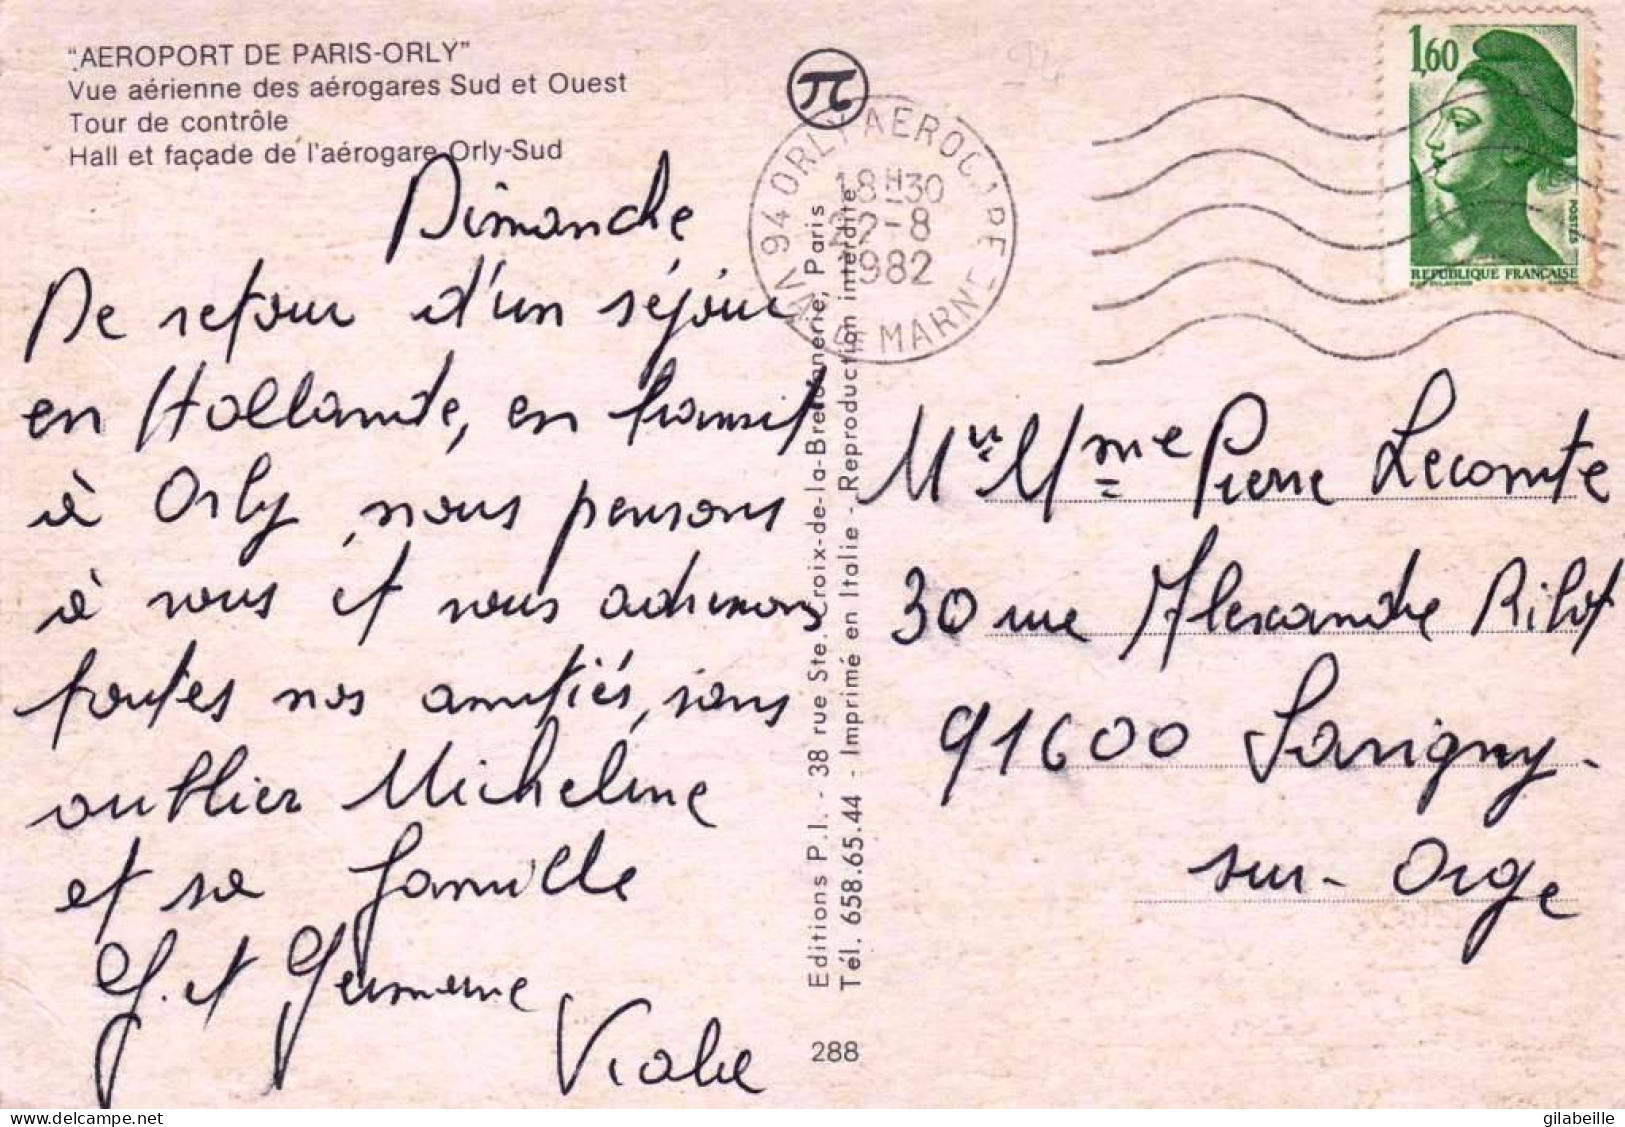 "AEROPORT DE PARIS-ORLY"
Vue aérienne des aérogares Sud et Ouest
Tour de contrôle
Hall et façade de l'aérogare Orly-Sud
Dimanche
De retour d'un séjour
en Hollande, en transit
à Orly, nous pensons
à vous et vous adressons
toutes nos amitiés, sans
oublier Micheline
et sa famille
G. et Germaine
Viable
94 ORLY AEROGARE
18H30
22-8
1982
VAL DE MARNE
1,60
POSTES
REPUBLIQUE FRANÇAISE
Editions P.I. - 38 rue Ste. Croix-de-la-Bretonnerie, Paris
Tél. 658.65.44 - Imprimé en Italie - Reproduction interdite
288
Mr Mme Pierre Lecomte
30 rue Alexandre Ribot
91600 Savigny-
sur-Orge
delcampe.net
gilabeille